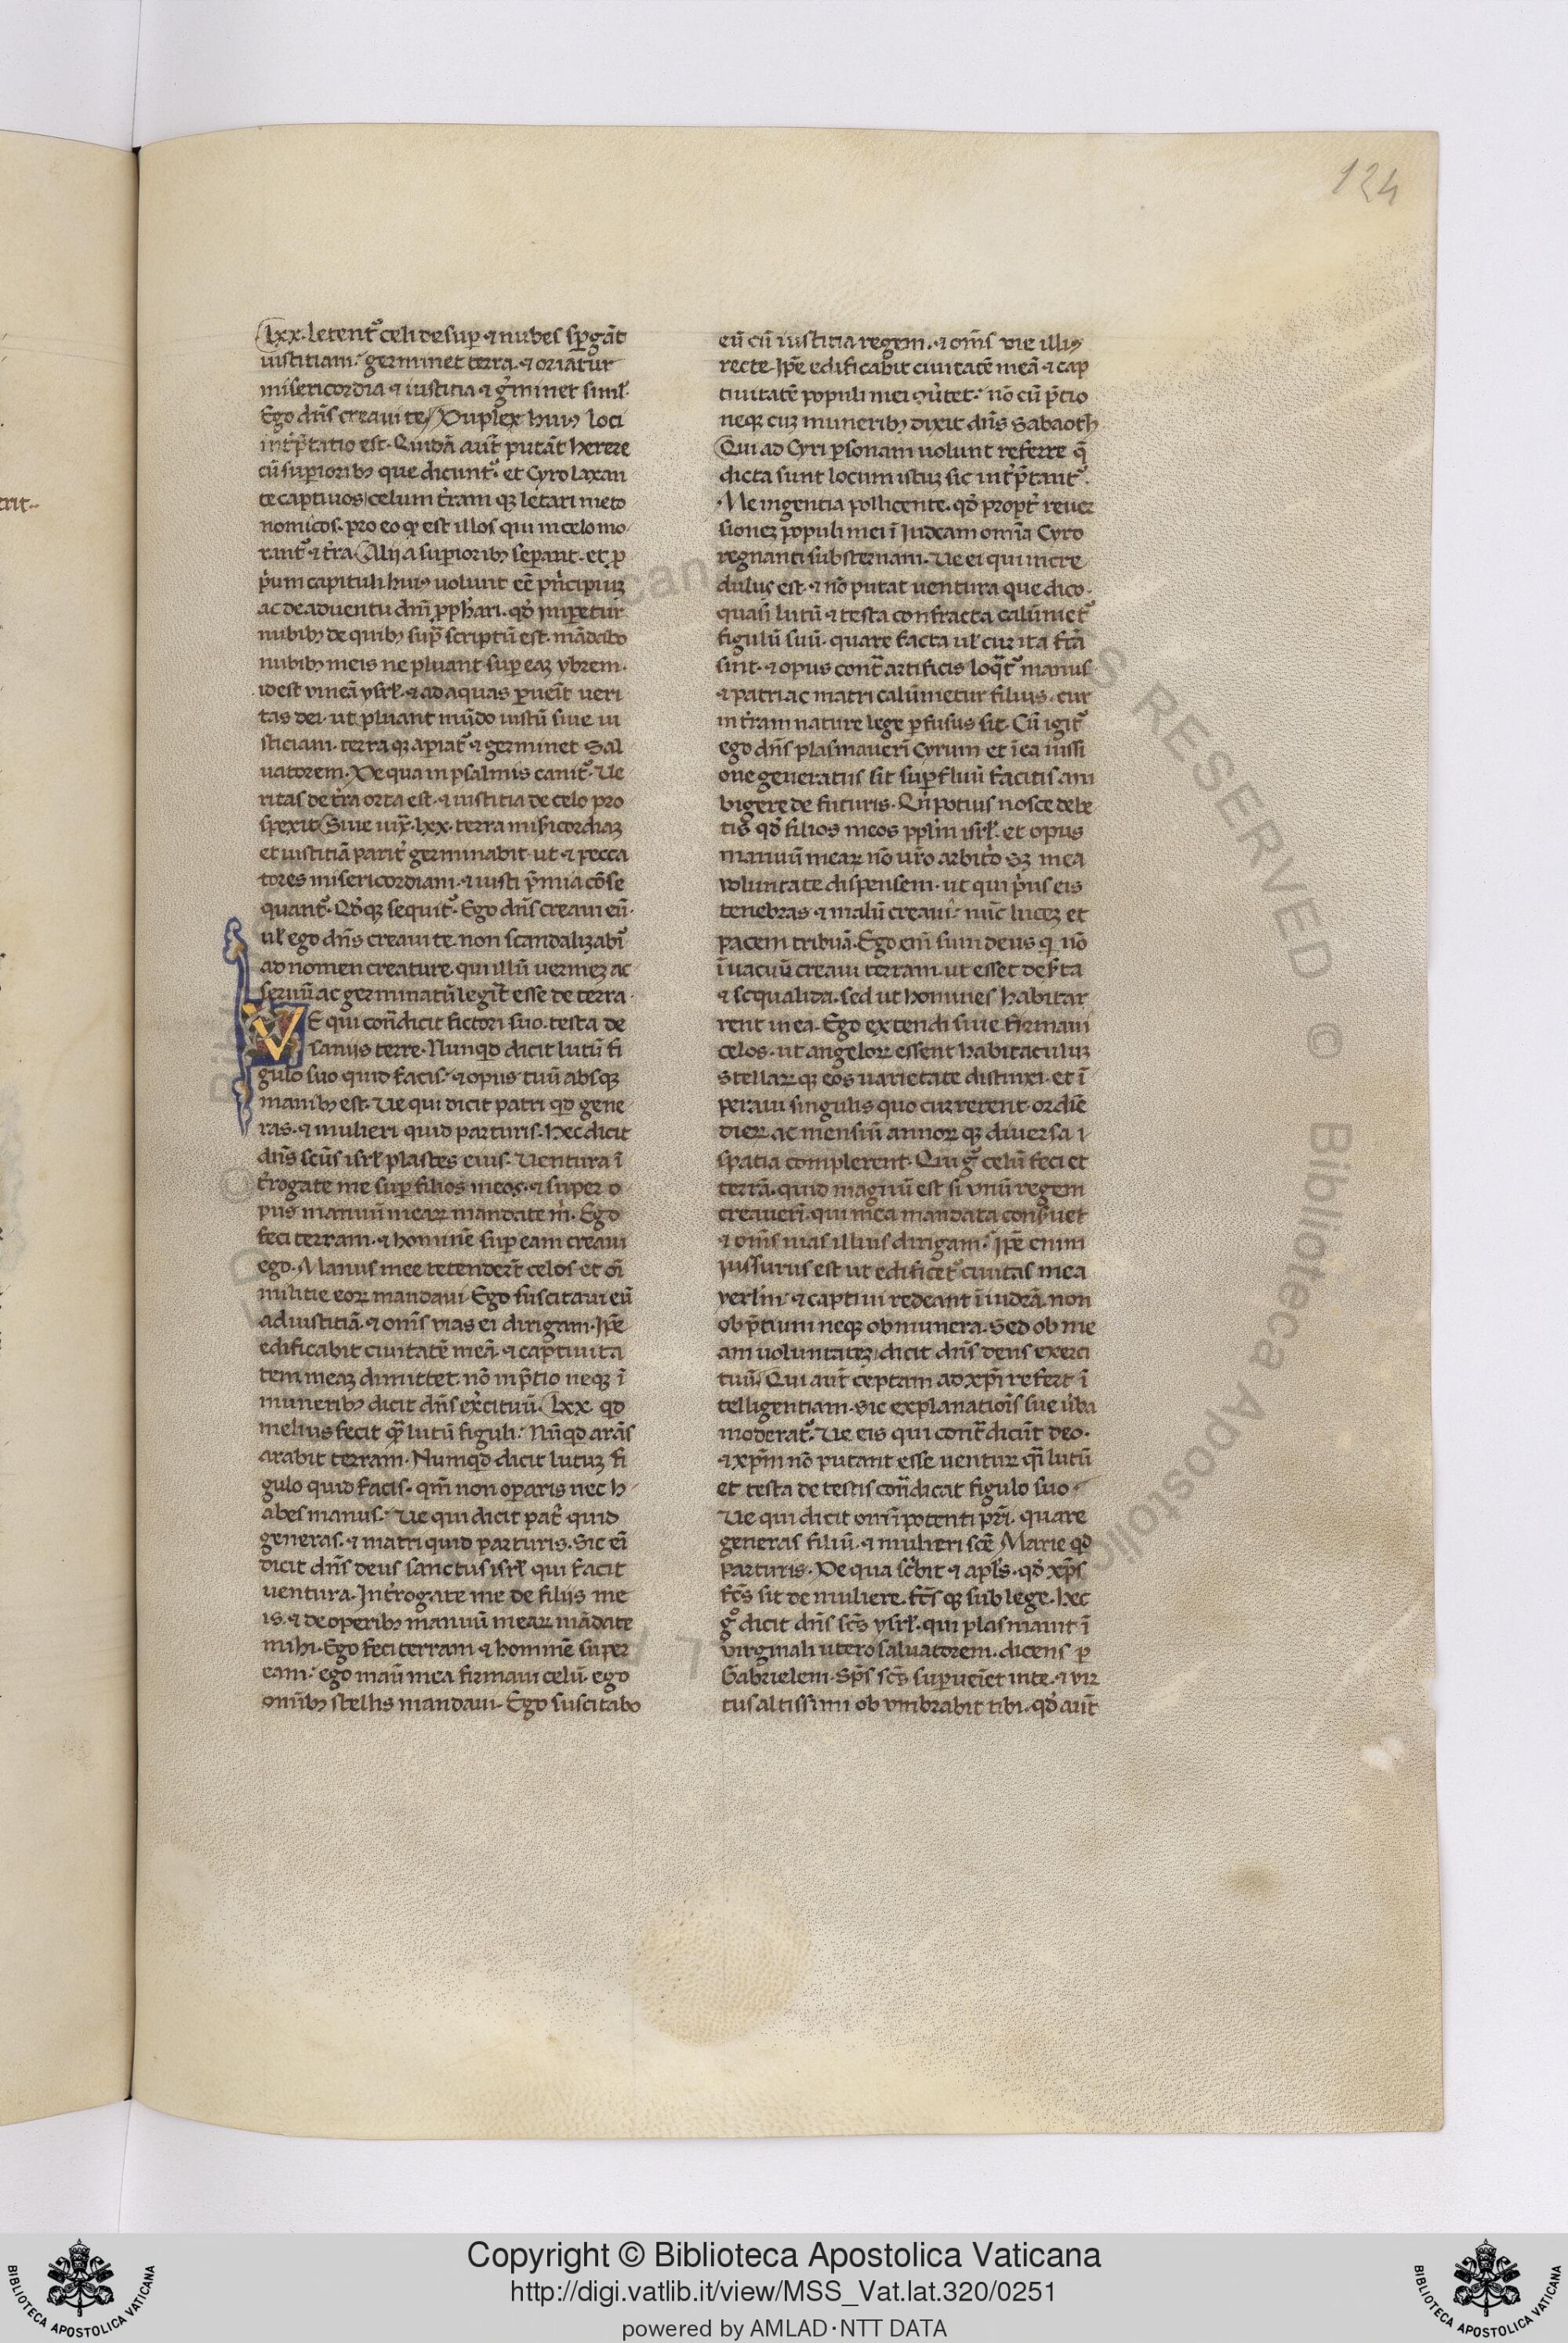 124
lxx. letent᷑ celi desup̱ ⁊ nubes sp̱gāt
iustitiam. germinet terra. ⁊ oriatur
misericordia ⁊ iustitia ⁊ g̔minet simĺ.
Ego dn̄s creaui te. Duplex huiꝰ loci
int̔p̄tatio est. Quidā aut̄ putāt herere
cū superioribꝫ que dicunt᷑. et Cyro laxan
te captiuos celum t̔ram qꝫ letari meto
nomicos. pro eo qꝫ est illos qui in celo mo
rant᷑ ⁊ t̔ra Alij a suꝑioribꝫ seꝑant. et ꝓ
p̔um capituli huiꝰ uolunt eē pn̔cipiuꝫ
ac de aduentu dn̄i ꝓphari. qd̔ imꝑetur
nubibꝫ de quibꝫ sup̄ scriptū est. mādabo
nubibꝫ meis ne pluant suꝑ eaꝫ ybrem.
id est vineā ysrĺ. ⁊ ad aquas ꝑueīt ueri
tas dei. ut pluant mūdo iustū siue iu
sticiam. terra qꝫ aꝑiat᷑ ⁊ germinet Sal
uatorem. De qua in psalmis canit᷑. Ue
ritas de t̔ra orta est. ⁊ iustitia de celo pro
spexit Siue iux̄. lxx. terra mis̔icordiaꝫ
et iustitiā parit̔ germinabit. ut ⁊ pecca
tores misericordiam. ⁊ iusti p̄mia cōse
quant᷑. Qd̔qꝫ sequit᷑. Ego dn̄s creaui eū.
uĺ ego dn̄s creaui te. non scandalizabi᷑
ad nomen creature. qui illū uermeꝫ ac
seruū ac germinatū legit̄ esse de terra.
VE qui con̄dicit fictori suo. testa de
saniis terre. Nunqd dicit lutū fi
gulo suo quid facis. ⁊ opus tuū absqꝫ
manibꝫ est. Ue qui dicit patri qd gene
ras. ⁊ mulieri quid parturis. Hec dicit
dn̄s scūs isrĺ plastes eius. Uentura ī
t̔rogate me suꝑ filios meos. ⁊ super o
pus manuū mearꝝ mandate m̔. Ego
feci terram. ⁊ hominē suꝑ eam creaui
ego. Manus mee tetender̄t celos et oī
militie eorꝝ mandaui. Ego suscitaui eū
ad iustitiā. ⁊ om̄s vias ei dirigam. Ip̄e
edificabit ciuitatē meā. ⁊ captiuita
tem meaꝫ dimittet. nō in p̄tio neqꝫ ī
muneribꝫ dicit dn̄s ex̔cituū. lxx. qd
melius fecit qua̅ lutū figuli. Nūqd arās
arabit terram. Numqd dicit lutuꝫ fi
gulo quid facis. qm̄ non oꝑaris nec h
abes manus. Ue qui dicit pat̔ quid
generas. ⁊ matri quid parturis. Sic ei᷑
dicit dn̄s deus sanctus isrĺ qui facit
uentura. Int̔rogate me de filiis me
is. ⁊ de operibꝫ manuū mearꝝ mādate
mihi. Ego feci terram ⁊ hominē super
eam. ego manū mea firmaui celū. ego
om̄ibꝫ stellis mandaui. Ego suscitabo
eū cū iustitia regem. ⁊ om̄s vie illiꝰ
recte. Ip̄e edificabit ciuitatē meā ⁊ cap
tiuitatē populi mei
nō cū p̄tio
neqꝫ cuꝫ muneribꝫ dixit dn̄s Sabaoth
Qui ad Cyri ꝑsonam uolunt referre q̄
dicta sunt locum istuꝫ sic int̔p̄tant᷑.
Me ingentia pollicente. qd̔ propt̔ reuer
sioneꝫ populi mei ī Iudeam omīa Cyro
regnanti substernam. Ue ei qui incre
dulus est. ⁊ nō putat uentura que dico.
quasi lutū ⁊ testa confracta calūniet᷑
figulū suū. quare facta uĺ cur ita fc̄a
sint. ⁊ opus cont̄ artificis loqt᷑ manus
⁊ patri ac matri calūnietur filius. cur
in t̔ram nature lege ꝑfusus sit. Cū igit᷑
ego dn̄s plasmauerī Cyrum et ī ea iussi
one generatus sit suꝑfluū facitis am
bigere de futuris. Qn̔ potius nosce debe
tis qd̔ filios meos pplm̄ isrĺ. et opus
manuū mearꝝ nō ur̄o arbit̔o sꝫ mea
voluntate dispensem. ut qui p̔us eis
tenebras ⁊ malū creaui. nūc luceꝫ et
pacem tribuā. Ego eni᷑ sum deus qi nō
ī uacuū creaui terram. ut esset des̔ta
⁊ sc̄qualida. sed ut homines habitar
rent in ea. Ego extendi siue firmaui
celos. ut angelorꝝ essent habitaculuꝫ
Stellarꝝ qꝫ eos uarietate distinxi. et ī
peraui singulis quo currerent. ordīe
dierꝝ ac mensiū annorꝝ qꝫ diuersa
spatia complerent. Qui g̊ celū feci et
terrā. quid magnū est si vnū regem
creauerī. qui mea mandata cons̔uet
⁊ om̄s uias illius dirigam. Ip̄e enim
iussurus est ut edificet᷑ ciuitas mea
yerlm̄. ⁊ captiui redeant ī iudeā. non
ob p̄tium neqꝫ ob munera. Sed ob me
am uoluntateꝫ. dicit dn̄s deus exerci
tuū. Qui aut̄ ceptam ad xp̄m refert ī
telligentiam. sic explanatiōis sue u̔ba
moderat᷑. Ue eis qui cont̄dicūt deo.
⁊ xp̄m nō putant esse uentur qi᷑ lutū
et testa de testis con̄dicat figulo suo.
Ue qui dicit om̄ipotenti pr̄i. quare
generas filiū. ⁊ mulieri sc̄e Marie qd
parturis. De qua sc̔bit ⁊ apĺs. qd̔ xp̄s
fc̄s sit de muliere. fc̄s qꝫ sub lege. hec
g̊ dicit dn̄s sc̄s ysrĺ. qui plasmauit ī
virginali utero saluatorem. dicens ꝑ
Gabrielem. Sp̄s sc̄s suꝑueīet in te. ⁊ vir
tus altissimi obumbrabit tibi. qd̔ aut̄
Copyright © Biblioteca Apostolica Vaticana
http://digi.vatlib.it/view/MSS_Vat.lat.320/0251
powered by AMLAD·NTT DATA
BIBLIOTECA APOSTOLICA VATICANA
BIBLIOTECA APOSTOLICA VATICANA